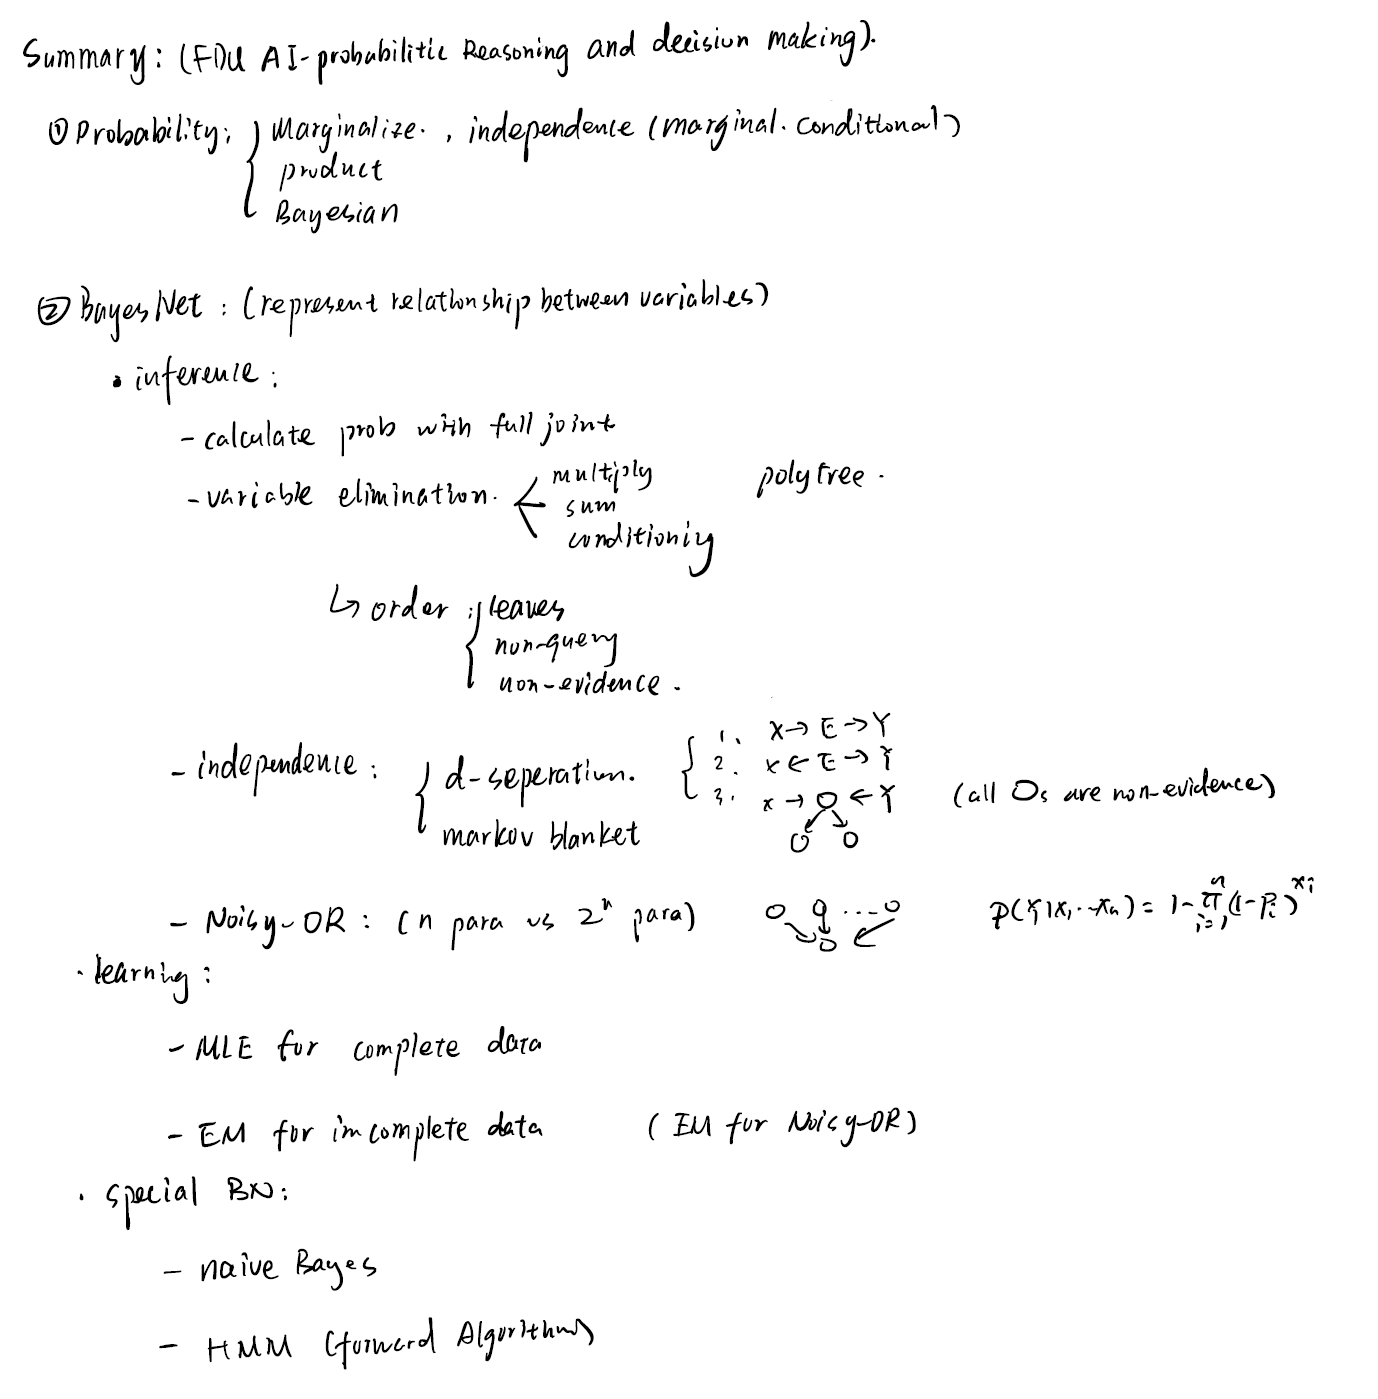 Summary: (FDU AI-probabilitic Reasoning and decision making).
① Probability: { Marginalize. , independence (marginal. conditional)
product
Bayesian
② Bayes Net : (represent relationship between variables)
• inference :
- calculate prob with full joint
- variable elimination. < multiply polytree .
sum
conditioning
↳ order : { leaves
non-query
non-evidence .
- independence : { d-seperation. { 1. X → E → Y
2. X ← E → Y
3. X → O ← Y (all Os are non-evidence)
markov blanket O O
- Noisy-OR : (n para vs 2^n para) O O ... O O P(Y|X1..Xn) = 1-∏_{i=1}^{n}(1-Pi)^{xi}
· learning :
- MLE for complete data
- EM for imcomplete data (EM for Noisy-OR)
· special BN :
- naive Bayes
- HMM (forward Algorithms)